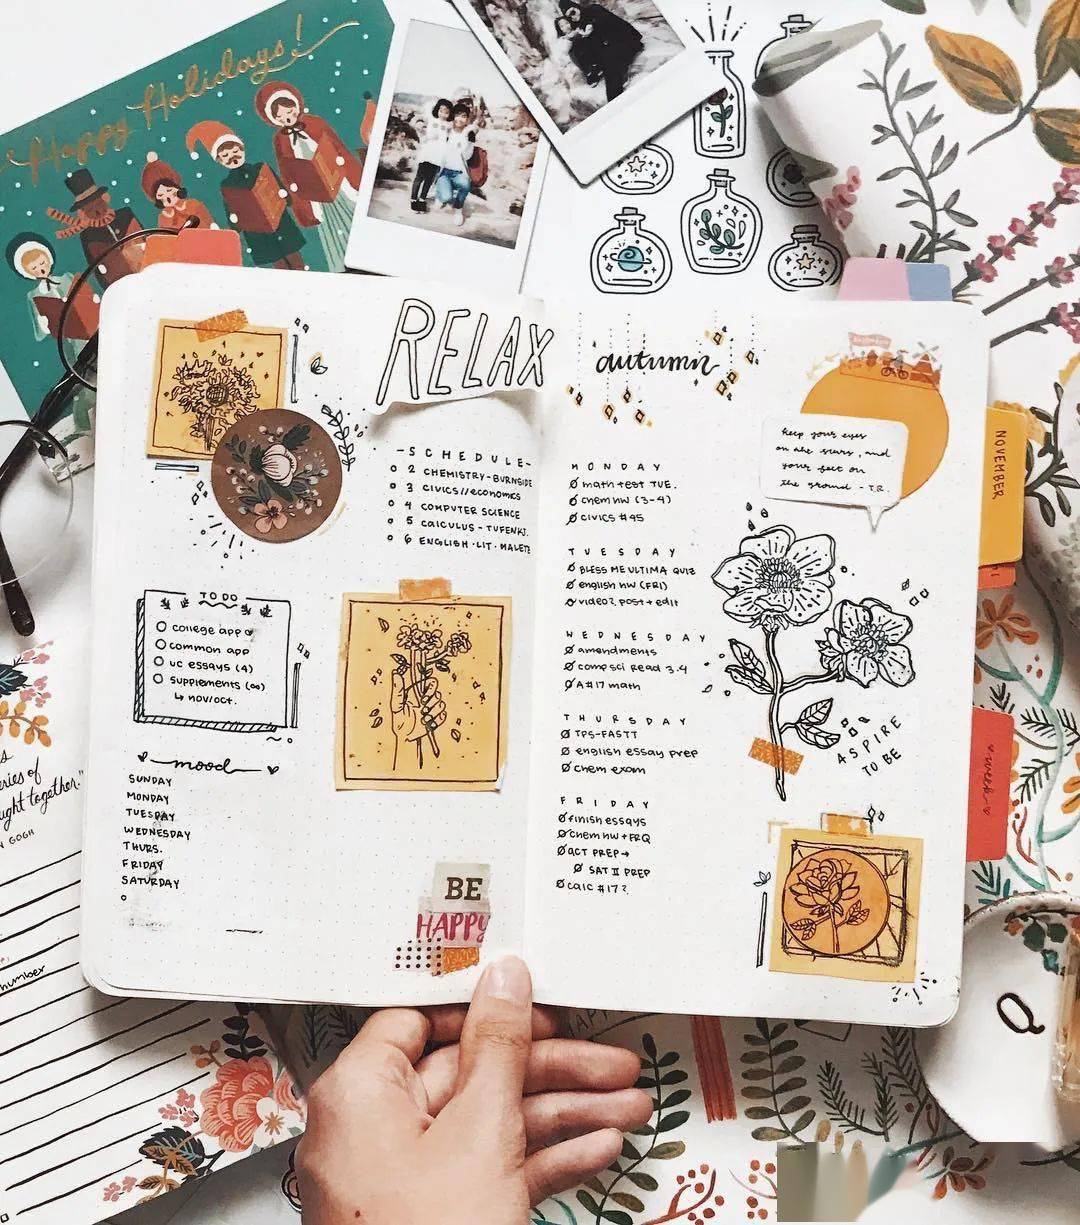 Happy Holidays!
RELAX
-SCHEDULE-
2 CHEMISTRY-BURNSIDE
3 CIVICS//economics
4 COMPUTER SCIENCE
5 CALCULUS - TUFENKJ.
6 ENGLISH·LIT·MALETE
TO DO
college app
common app
UC essays (4)
supplements (∞)
↳ nov/oct.
mood
SUNDAY
MONDAY
TUESDAY
WEDNESDAY
THURS.
FRIDAY
SATURDAY
BE
HAPPY
autumn
keep your eyes
on the stars, and
your feet on
the ground - T.R.
MONDAY
math test TUE.
chem HW (3-4)
CIVICS #45
TUESDAY
BLESS ME ULTIMA QUIZ
english HW (FRI)
video? post + edit
WEDNESDAY
amendments
comp sci Read 3.4
A#17 math
THURSDAY
TPS-FASTT
english essay prep
chem exam
FRIDAY
finish essays
chem HW + FRQ
ACT PREP→
SAT II PREP
calc #17?
ASPIRE
TO BE
NOVEMBER
week
eries of
ught together."
N GOGH
number